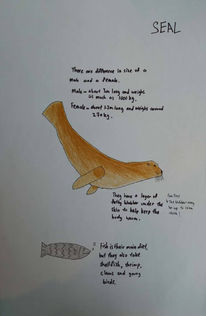 SEAL
There are difference in size of a
male and a female.
Male - about 3m long and weighs
as much as 1000 kg.
Female - about 2.5m long and weighs around
270 kg.
They have a layer of
blubber under the
skin to help keep the
body warm.
Fish is their main diet,
but they also take
shellfish, shrimp,
clams and young
birds.